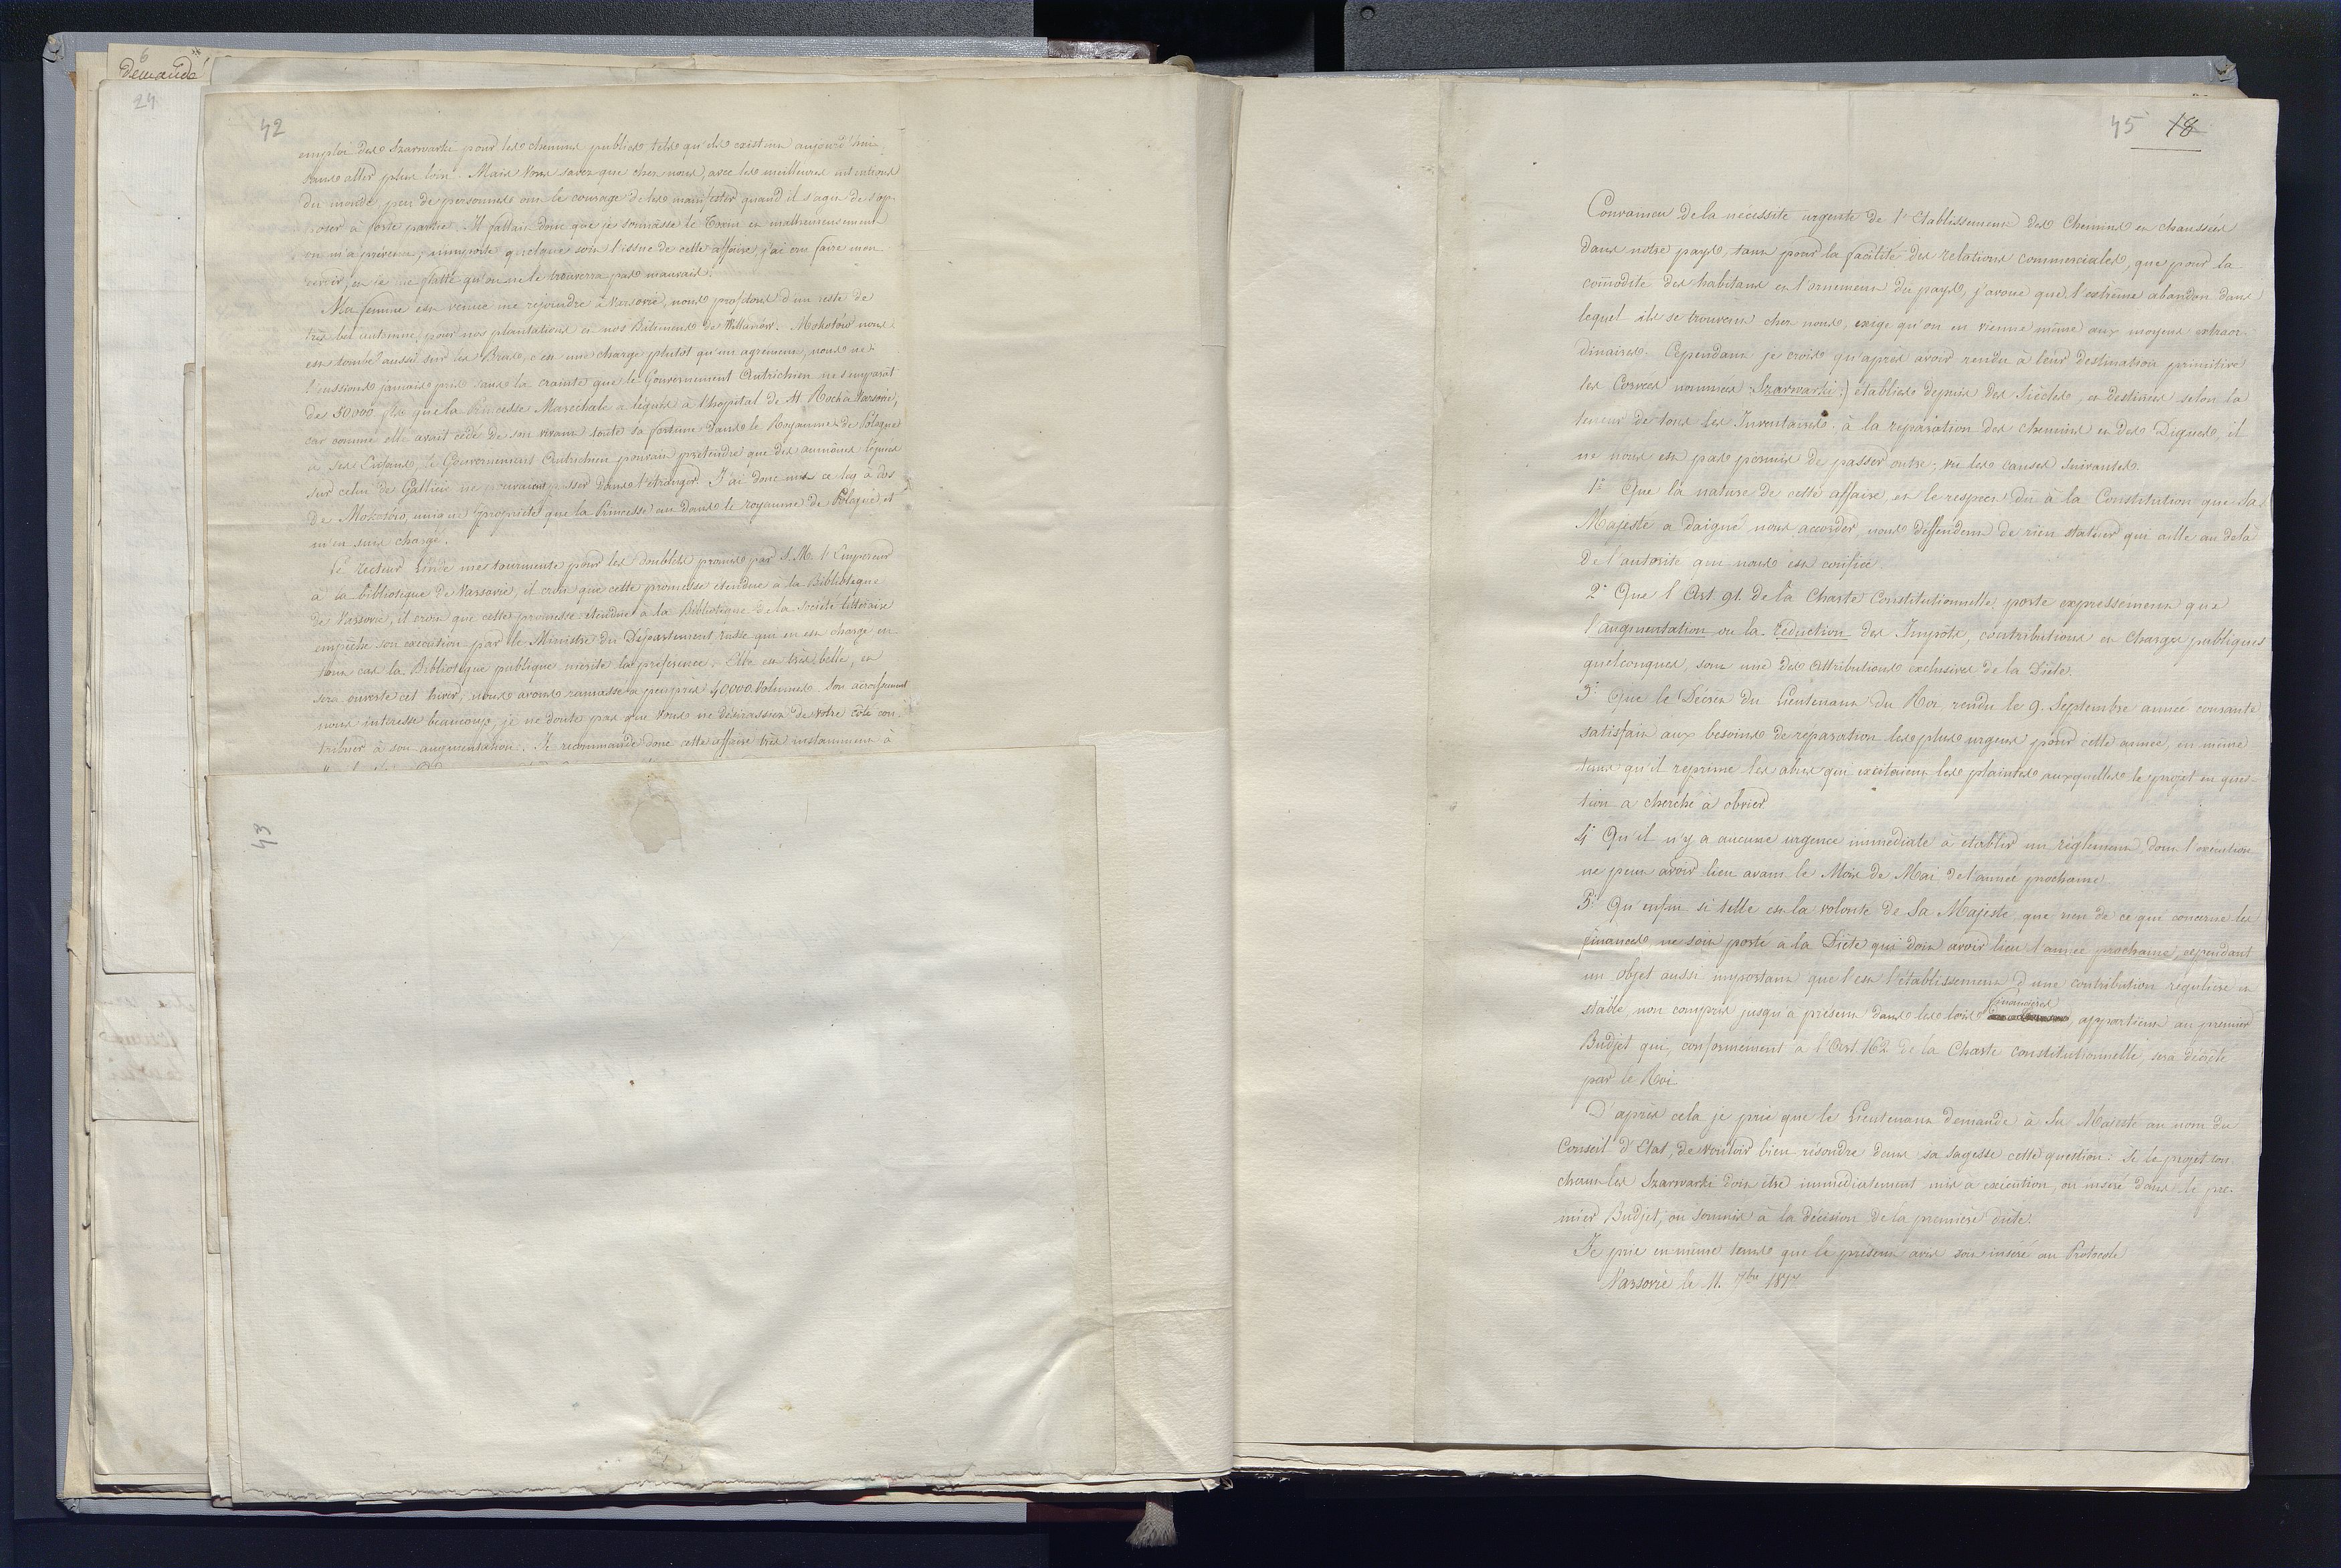 6
demande
24
42
emploi des Szarwarki pour les chemins publics, tels qu'ils existent aujourd'hui,
sans aller plus loin. Mais Vous savez que chez nous, avec les meilleures intentions
du monde, peu de personnes ont le courage de les manifester quand il s'agit de s'op-
poser à forte partie. Il fallait donc que je sonnasse le Tocsin et malheureusement
on m'a prévenu, n'importe quelque soit l'issue de cette affaire, j'ai cru faire mon
devoir, et je me flatte qu'on ne le trouvera pas mauvais.
Ma femme est venue me rejoindre à Varsovie, nous profitons d'un reste de
très bel automne, pour nos plantations et nos Bâtimens de Willanów. Mokotów nous
est tombé aussi sur les Bras, c'est une charge plutôt qu'un agrément, nous ne
l'eussions jamais pris sans la crainte que le Gouvernement Autrichien ne s'emparât
des 50000 que la Princesse Maréchale a légués à l'hopital de St. Roch à Varsovie,
car comme elle avait cédé de son vivant toute sa fortune dans le Royaume de Pologne
à ses Enfans, le Gouvernement Autrichien pouvait prétendre que des aumônes léguées
sur celui de Gallicie ne pouvaient passer dans l'étranger. J'ai donc mis ce leg à dos
de Mokotów, unique propriété que la Princesse eut dans le royaume de Pologne et
m'en suis chargé.
Le recteur Linde me tourmente pour les doubles promis par S. M. l'Empereur
à la bibliotèque de Varsovie, il croit que cette promesse étendue à la Bibliotèque
de Varsovie, il croit que cette promesse étendue à la Bibliotèque de la Société littéraire
empêche son exécution par le Ministre du Département russe qui en est chargé en
tout cas la Bibliotèque publique mérite la préférence. Elle est très belle, et
sera ouverte cet hiver, nous avons ramassé à peu près 40000 Volumes. Son accroissement
nous intéresse beaucoup, je ne doute pas que Vous ne désirassiez de votre côté con-
tribuer à son augmentation. Je recommande donc cette affaire très instamment à
43
45 18
Convaincu de la nécessité urgente de l'Etablissement des Chemins en chaussées
dans notre pays, tant pour la facilité des relations commerciales, que pour la
com̄odité des habitans et l'ornement du pays, j'avoue que l'extrême abandon dans
lequel ils se trouvent chez nous, exige qu'on en vienne même aux moyens extraor-
dinaires. Cependant je crois qu'après avoir rendu à leur destination primitive
les Corvées nommées Szarwarki :) établies depuis des Siècles, et destinées selon la
teneur de tous les Inventaires, à la reparation des chemins et des Digues, il
ne nous est pas permis de passer outre, vu les causes suivantes.
1° Que la nature de cette affaire, et le respect dû à la Constitution que Sa
Majesté a daigné nous accorder, nous deffendent de rien statuer qui aille au delà
de l'autorité qui nous est confiée.
2° Que l'Art 91. de la Charte Constitutionnelle, porte expressement que
l'augmentation ou la réduction des Impôts, contributions et charges publiques
quelconques, sont une des attributions exclusives de la Diète.
3° Que le Décret du Lieutenant du Roi rendu le 9. Septembre année courante
satisfait aux besoins de réparation les plus urgens pour cette année, en même
tems qu'il reprime les abus qui excitaient les plaintes auxquelles le projet en ques-
tion a cherché à obvier
4° Qu'il n'y a aucune urgence immédiate à etablir un réglement, dont l'execution
ne peut avoir lieu avant le Mois de Mai de l'année prochaine
5° Qu'enfin si telle est la volonté de Sa Majesté, que rien de ce qui concerne les
finances, ne soit porté à la Diète qui doit avoir lieu l'année prochaine, cependant
un objet aussi important que l'est l'établissement d'une contribution régulière et
stable, non compris jusqu'à présent dans les loix financières appartient au premier
Budjet qui, conformément à l'Art. 162 de la Charte constitutionnelle, sera décrété
par le Roi.
D'après cela je prie que le Lieutenant demande à Sa Majesté au nom du
Conseil d'Etat, de vouloir bien résoudre dans sa sagesse cette question: Si le projet tou-
chant les Szarwarki doit être immédiatement mis à exécution, ou inséré dans le pre-
mier Budjet, ou soumis à la décision de la première diète.
Je prie en même tems que le présent avis soit inséré au Protocole
Varsovie le 11. 7bre 1817